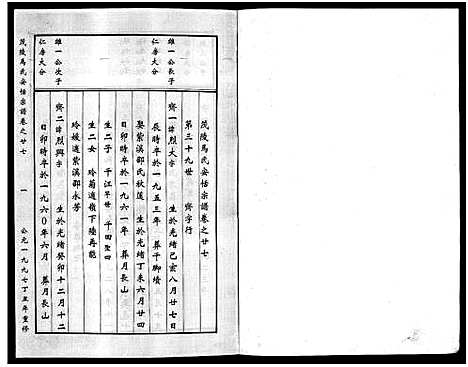 茂陵馬氏安恬宗譜卷之廿七
第三十九世　齊字行
雄一公長子
仁房大分
齊一 諱烈大字　生於光緒己亥八月廿七日
辰時卒於一九五三年　葬于腳墳
娶紫溪邵氏秋蓮　生於光緒丁未六月廿四
日卯時卒於一九六一年　葬月長山
生二子　千江早世　千田聖四
生二女　玲菊適嶺下陸再能
玲媛適紫溪邵永芳
雄一公次子
仁房大分
齊二 諱烈興字　生於光緒癸卯十二月十二
日卯時卒於一九六〇年六月　葬月長山
茂陵馬氏安恬宗譜卷之廿七　一　公元一九九七丁丑年重修